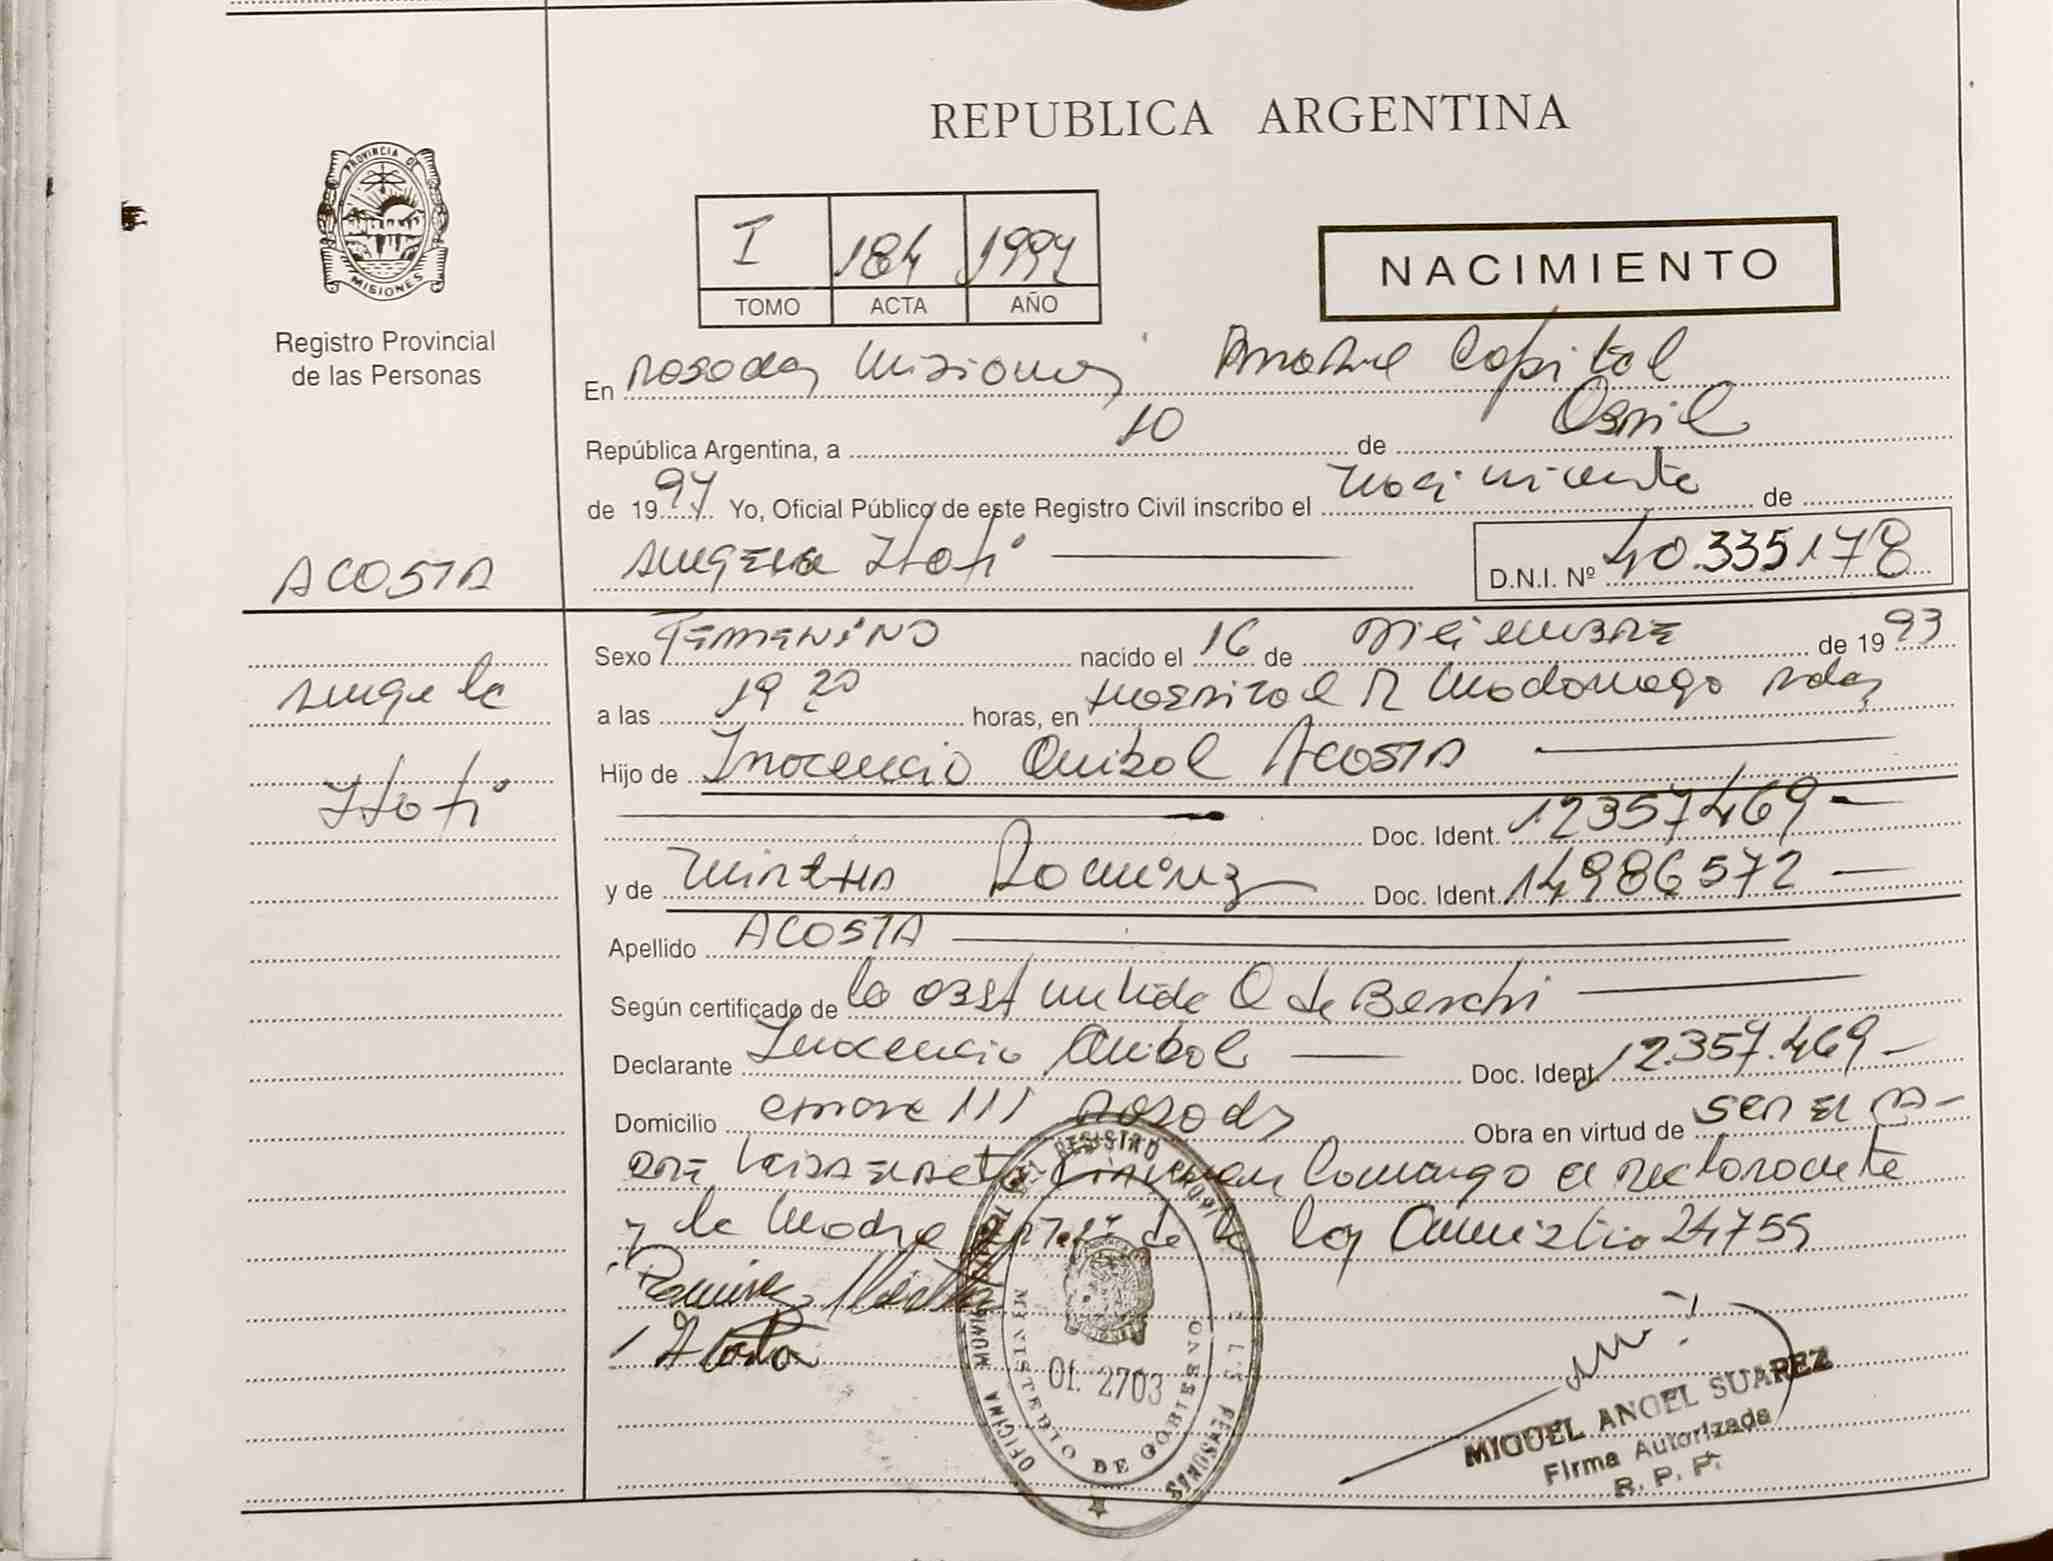 REPUBLICA ARGENTINA
PROVINCIA DE
MISIONES
Registro Provincial
de las Personas
I 184 1994
TOMO ACTA AÑO
NACIMIENTO
En Posadas Misiones Capital
República Argentina, a 10 de Abril
de 1994 Yo, Oficial Público de este Registro Civil inscribo el nacimiento de
Angela Itatí
D.N.I. Nº 40.335178
ACOSTA
Angela
Itatí
Sexo Femenino nacido el 16 de Diciembre de 1993
a las 19 20 horas, en Hospital R Madariaga Pdas
Hijo de Inocencio Anibal Acosta
Doc. Ident. 12357469
y de Mirtha Ramirez Doc. Ident. 14986572
Apellido ACOSTA
Según certificado de la obst de Berchi
Declarante Inocencio Anibal Doc. Ident. 12.357.469
Domicilio Posadas Obra en virtud de ser el pa-
dre firman conmigo el declarante
y la madre de la ley Amnistia 24755
Ramirez Mirtha
Acosta
OFICINA
MINISTERIO DE GOBIERNO
Of. 2703
MIGUEL ANGEL SUAREZ
Firma Autorizada
R. P. P.